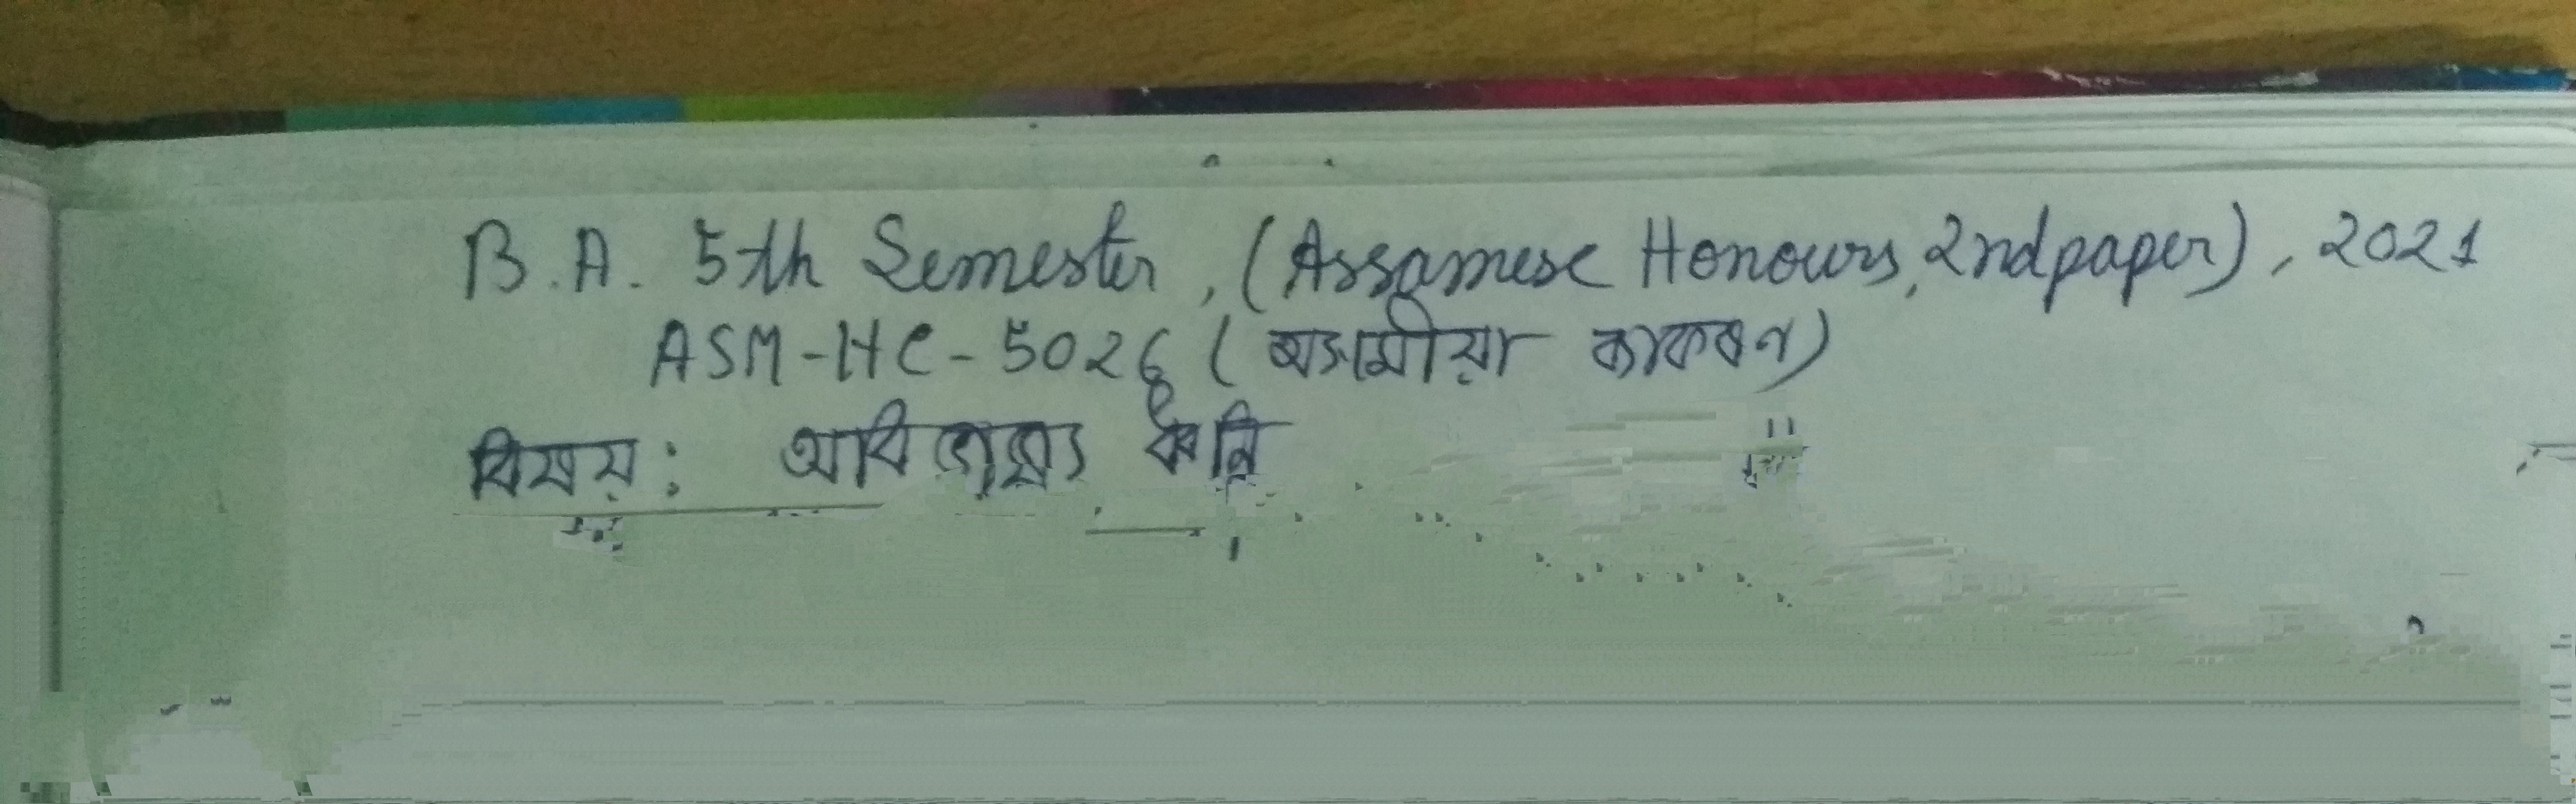 B.A. 5th Semester, (Assamese Honours, 2nd paper), 2021
ASM-HC-5026 (অসমীয়া ব্যাকৰণ)
বিষয়: অবিভাজ্য ধ্বনি